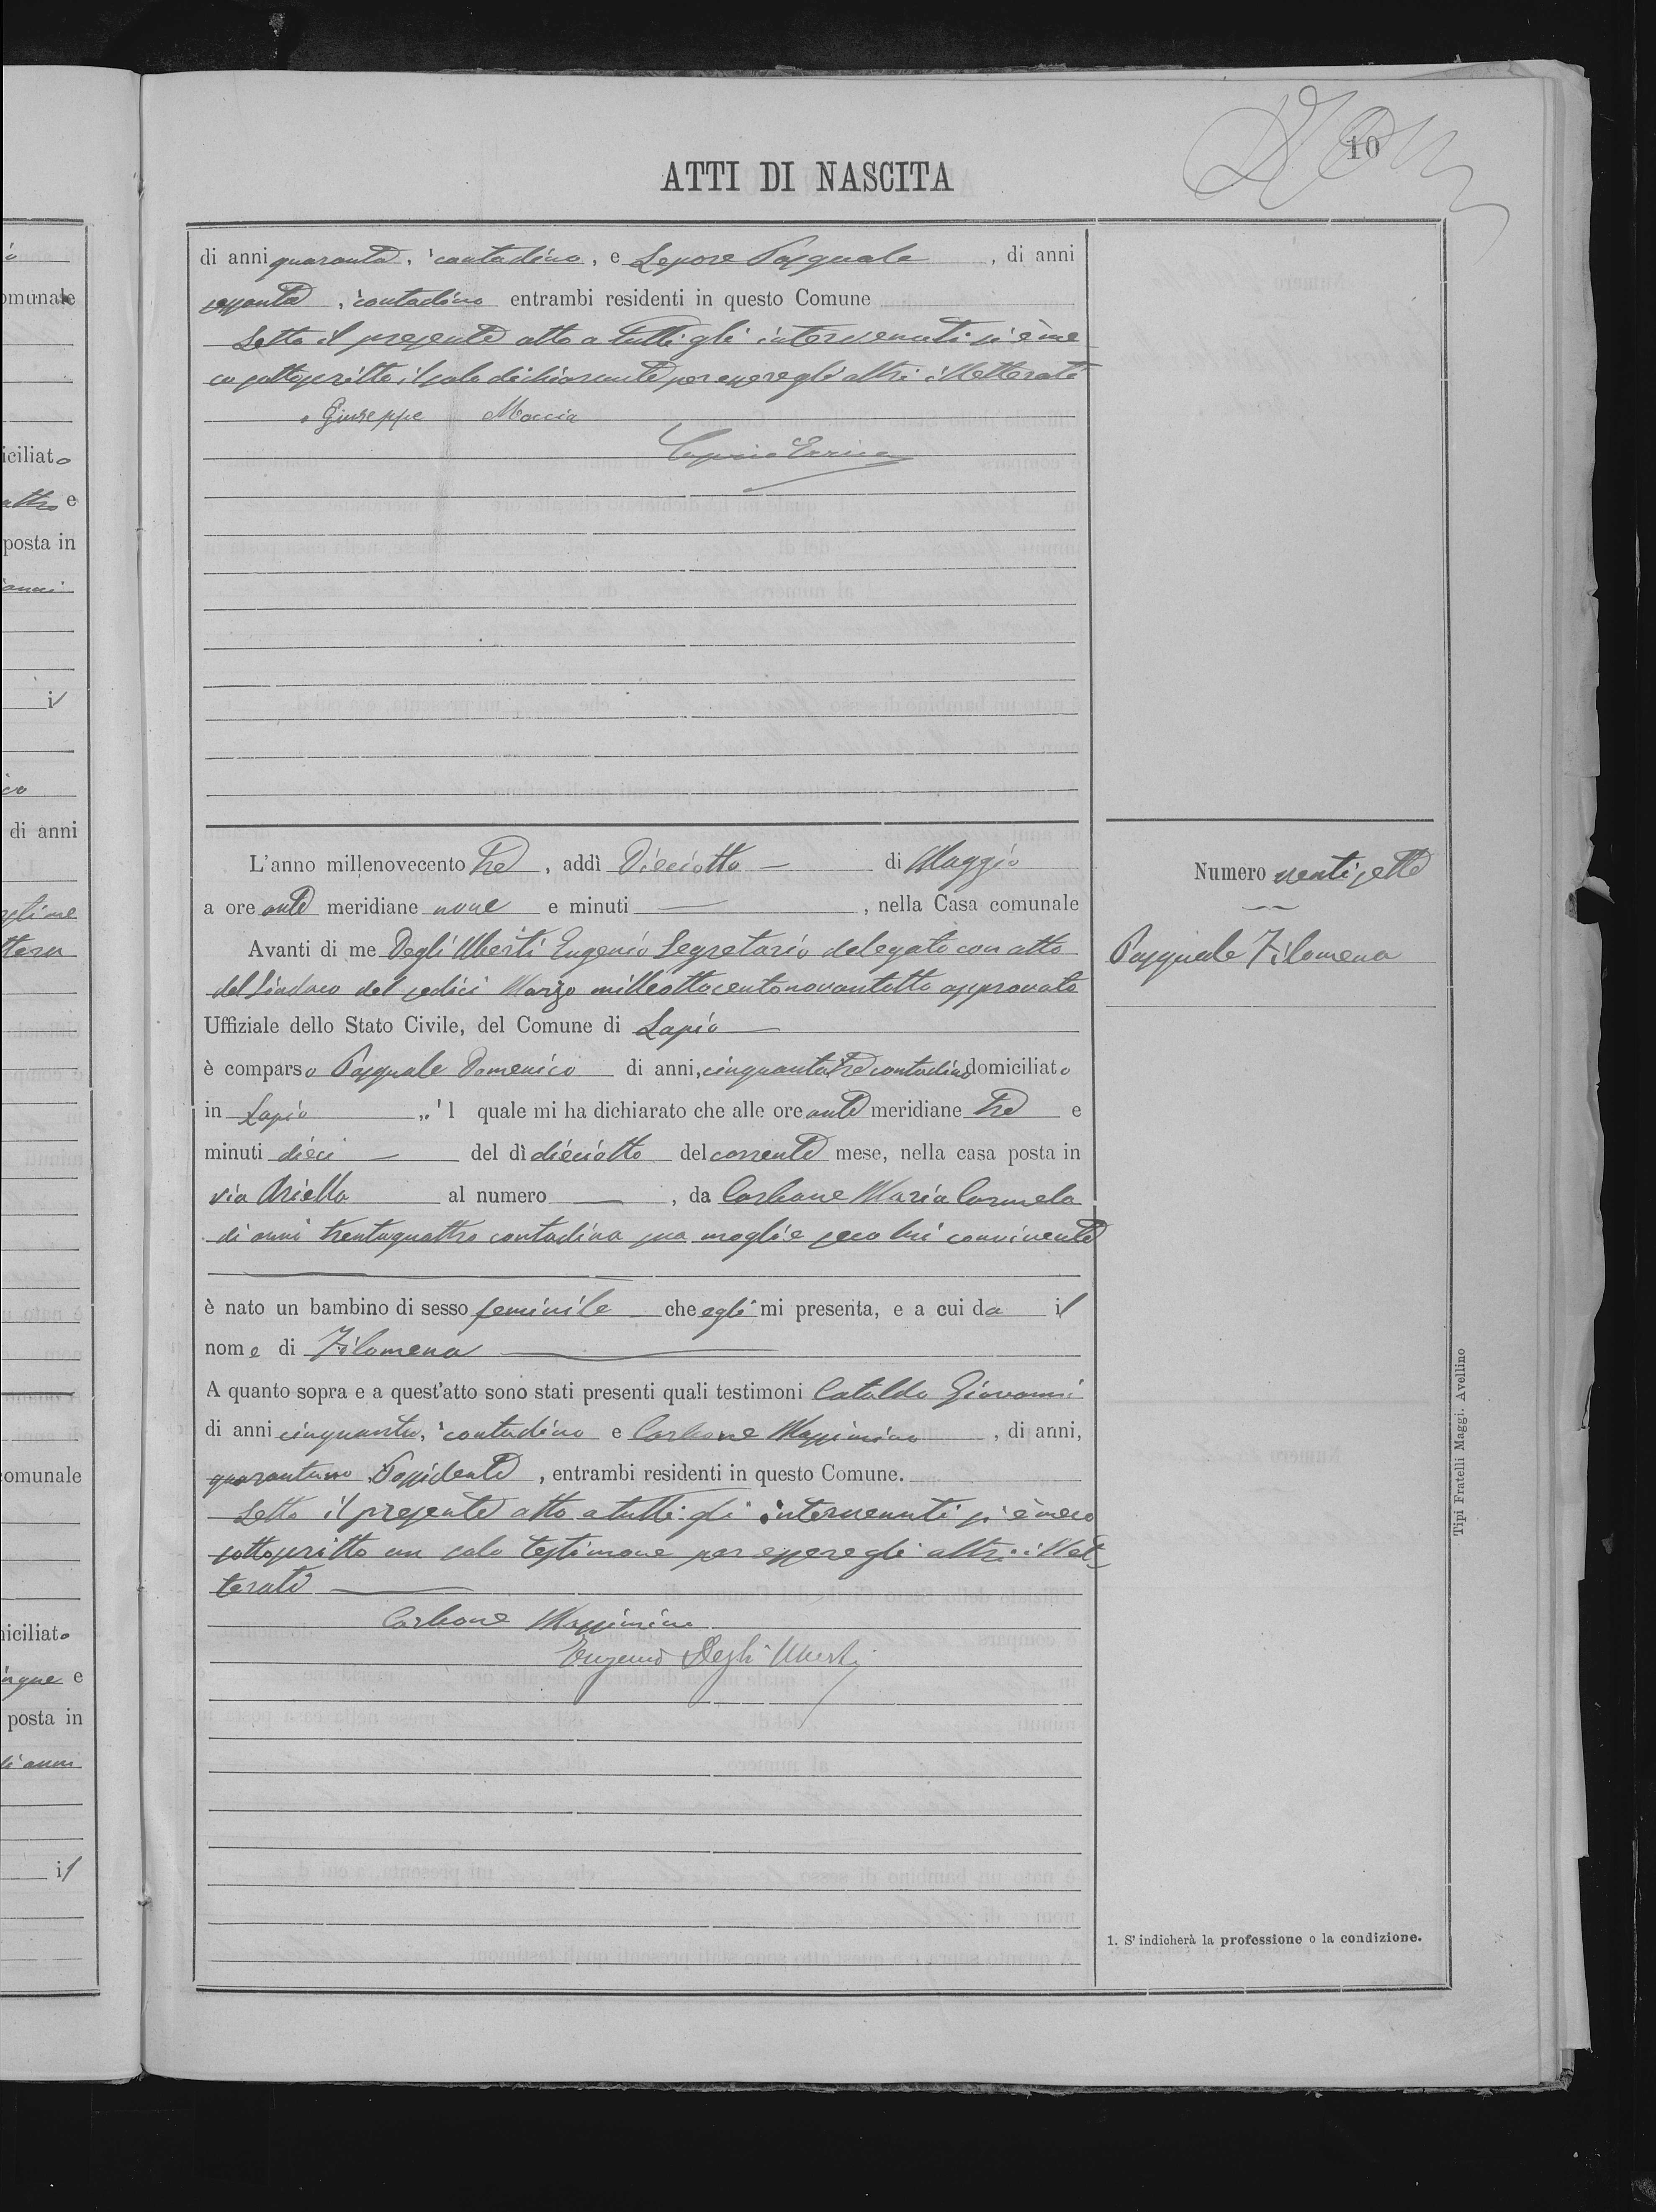 10
ATTI DI NASCITA
di anni quaranta, contadino, e Lepore Pasquale, di anni
sessanta, contadino entrambi residenti in questo Comune
Letto il presente atto a tutti gli intervenuti si è me
co sottoscritto il solo dichiarante per essere gli altri illetterati
Giuseppe Moccia
Caprio Enrico
L'anno millenovecento tre, addì Dieciotto di Maggio
a ore ante meridiane nove e minuti —, nella Casa comunale
Avanti di me Degli Uberti Eugenio Segretario delegato con atto
del Sindaco del sedici Marzo milleottocentonovantotto approvato
Uffiziale dello Stato Civile, del Comune di Lapio
è comparso Pasquale Domenico di anni, cinquantatre contadino domiciliato
in Lapio, il quale mi ha dichiarato che alle ore ante meridiane tre e
minuti dieci del dì dieciotto del corrente mese, nella casa posta in
via Ariella al numero —, da Carbone Maria Carmela
di anni trentaquattro contadina sua moglie seco lui convivente
è nato un bambino di sesso feminile che egli mi presenta, e a cui da il
nome di Filomena
A quanto sopra e a quest'atto sono stati presenti quali testimoni Cataldo Giovanni
di anni cinquanta, contadino e Carbone Massimino, di anni,
quarantuno Possidente, entrambi residenti in questo Comune.
Letto il presente atto a tutti gli intervenuti si è meco
sottoscritto un solo testimone per essere gli altri illet
terati
Carbone Massimino
Eugenio Degli Uberti
Numero ventisette
Pasquale Filomena
1. S'indicherà la professione o la condizione.
Tipi Fratelli Maggi. Avellino
omunale
iciliato
attro e
posta in
anni
il
di anni
comunale
iciliato
inque e
posta in
di anni
il